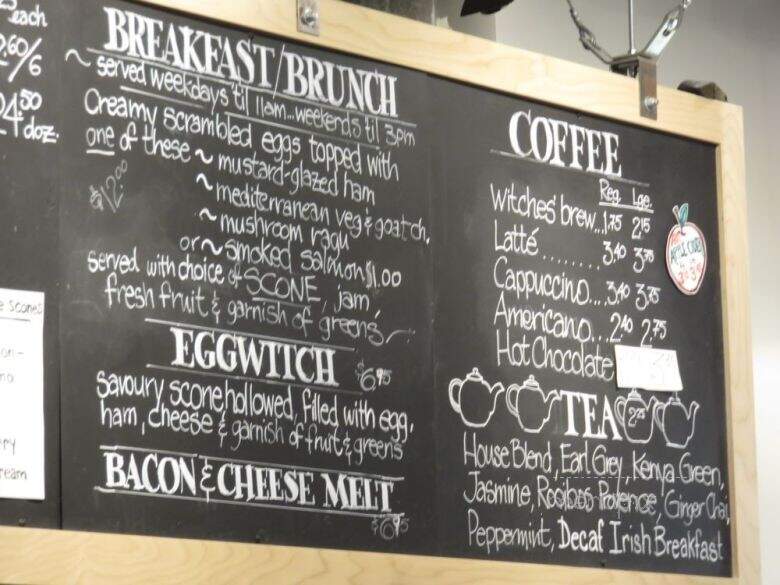 each
2.60/6
4.50
doz.
BREAKFAST/BRUNCH
~ served weekdays 'til 11am...weekends til 3pm
Creamy scrambled eggs topped with
one of these ~ mustard-glazed ham
$12.00
~ mediterranean veg & goat ch.
~ mushroom ragu
or ~ smoked salmon $1.00
served with choice of SCONE, jam,
fresh fruit & garnish of greens
EGGWITCH $6.95
savoury scone hollowed, filled with egg,
ham, cheese & garnish of fruit & greens
BACON & CHEESE MELT
$6.95
COFFEE
Reg. Lge.
Witches' brew...1.75 2.15
Latté........3.40
Cappuccino...3.40
Americano...2.40 2.75
Hot Chocolate
APPLE CIDER
TEA
House Blend, Earl Grey, Kenya Green,
Jasmine, Rooibos Provence, Ginger Chai,
Peppermint, Decaf Irish Breakfast
e scones
on-
ry
ream